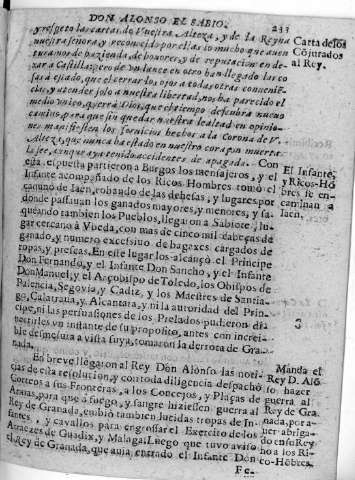 DON ALONSO EL SABIO. 233
y respeto las cartas de Vuestra Alteza, y de la Reyna
nuestra señora, y reconocido por ellas lo mucho que auen
turamos de hazienda, de honores, y de reputacion en de-
xar a Castilla; pero de vn lance en otro han llegado las co
sas à estado, que el cerrar los ojos a todas otras convenie-
cias, y atender solo a nuestra libertad, nos ha parecido el
medio vnico, querrá Dios, que el tiempo descubra nueuo
camino, para que sin quedar nuestra lealtad en opinio-
nes manifieste los seruicios hechos a la Corona de V.
Alteza, que nunca ha estado en nuestro coraçon muerta
la fee, aunque aya tenido accidentes de apagada. Con
esta respuesta partieron a Burgos los mensajeros, y el
Infante acompañado de los Ricos Hombres tomò el
camino de Iaen, robando las dehesas, y lugares por
donde passauan los ganados mayores, y menores, y sa-
queando tambien los Pueblos, llegaron a Sabiore, lu-
gar cercano à Vueda, con mas de cinco mil cabeças de
ganado, y numero excessiuo de bagexes cargados de
ropas, y preseas. En este lugar los alcançò el Principe
Don Fernando, y el Infante Don Sancho, y el Infante
Don Manuel, y el Arçobispo de Toledo, los Obispos de
Palencia, Segovia, y Cadiz, y los Maestres de Santia-
go, Calatraua, y Alcantara, y ni la autoridad del Prin-
cipe, ni las persuasiones de los Prelados pudieron di-
uertirles vn instante de su proposito, antes con increi-
ble desmesura a vista suya, tomaron la derrota de Gra-
nada.
En breve llegaron al Rey Don Alonso las noti-
cias de esta resolucion, y con toda diligencia despachò
Correos a sus Fronteras, a los Concejos, y Plaças de
Armas, para que à fuego, y sangre hiziessen guerra al
Rey de Granada, embiò tambien lucidas tropas de In-
fantes, y cavallos para engrossar el Exercito de los
Arraezes de Guadix, y Malaga. Luego que tuvo aviso
el Rey de Granada, que auia entrado el Infante Don
Fe-
Carta de los
Cõjurados
al Rey.
El Infante,
y Ricos-Hõ
bres se en-
caminan a
Iaen.
Manda el
Rey D. Alõ
so hazer
guerra al
Rey de Gra
nada, por a-
uer abriga-
do en su Rey
no a los Ri-
co-Hõbres.